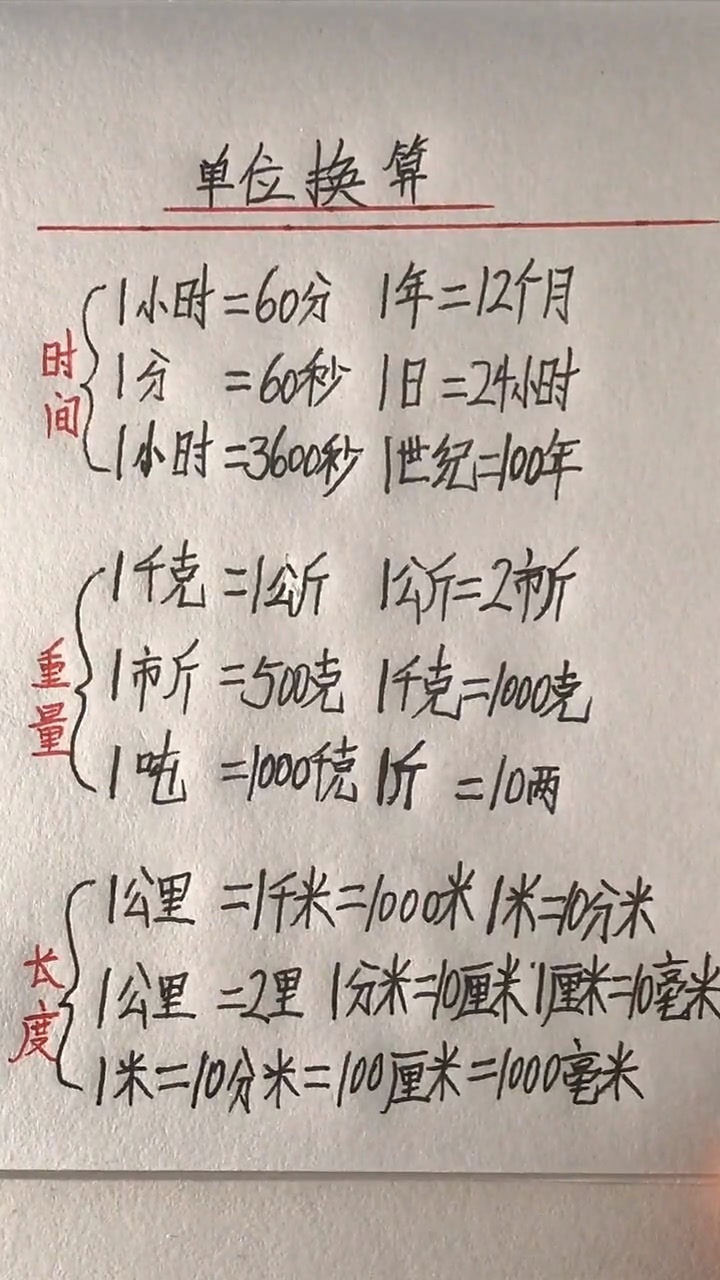 单位换算
时间
1小时=60分 1年=12个月
1分 =60秒 1日=24小时
1小时=3600秒 1世纪=100年
重量
1千克=1公斤 1公斤=2市斤
1市斤=500克 1千克=1000克
1吨 =1000千克 1斤 =10两
长度
1公里=1千米=1000米 1米=10分米
1公里=2里 1分米=10厘米 1厘米=10毫米
1米=10分米=100厘米=1000毫米